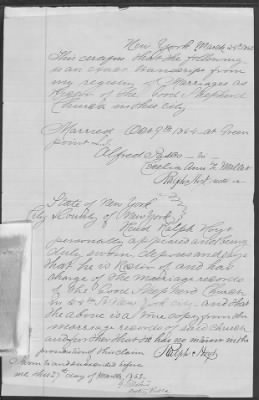 New York March 25th
This certifies that the following
is an exact transcript from
my register of Marriages as
Rector of The Good Shepherd
Church in this city
Married Oct 9th 1864 at Green
point L.I.
Alfred to
Ann
Ralph Hoyt
State of New York
City & County of New York
Revd Ralph Hoyt
personally appeared and being
duly sworn deposes and says
that he is Rector of and has
charge of the marriage records
of The Good Shepherd Church
in New York city and that
the above is a true copy from the
marriage records of said Church
and further that he has no interest in the
prosecution of this claim
Ralph Hoyt
Sworn to and subscribed before
me this 27th day of March
Notary Public